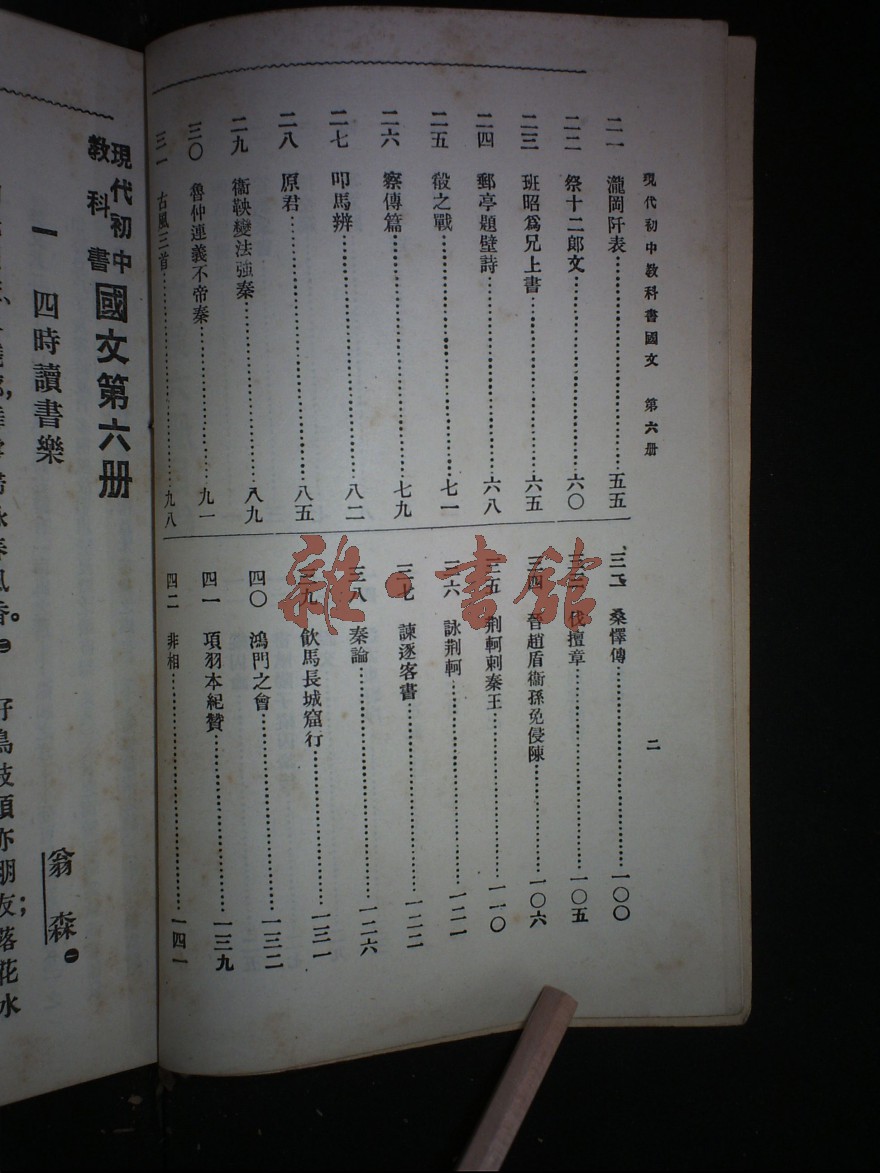 現代初中教科書國文 第六册
二
二一 瀧岡阡表 五五
二二 祭十二郎文 六〇
二三 班昭爲兄上書 六五
二四 郵亭題壁詩 六八
二五 殽之戰 七一
二六 察傳篇 七九
二七 叩馬辨 八二
二八 原君 八五
二九 衞鞅變法強秦 八九
三〇 魯仲連義不帝秦 九一
三一 古風三首 九八
三二 桑懌傳 一〇〇
三三 伐檀章 一〇五
三四 晉趙盾衞孫免侵陳 一〇六
三五 荆軻刺秦王 一一〇
三六 詠荆軻 一二一
三七 諫逐客書 一二二
三八 秦論 一二六
三九 飲馬長城窟行 一三一
四〇 鴻門之會 一三二
四一 項羽本紀贊 一三九
四二 非相 一四一
現代初中教科書 國文第六册
一 四時讀書樂
翁森㊀
春風香。㊁ 好鳥枝頭亦朋友；落花水
雜·書館